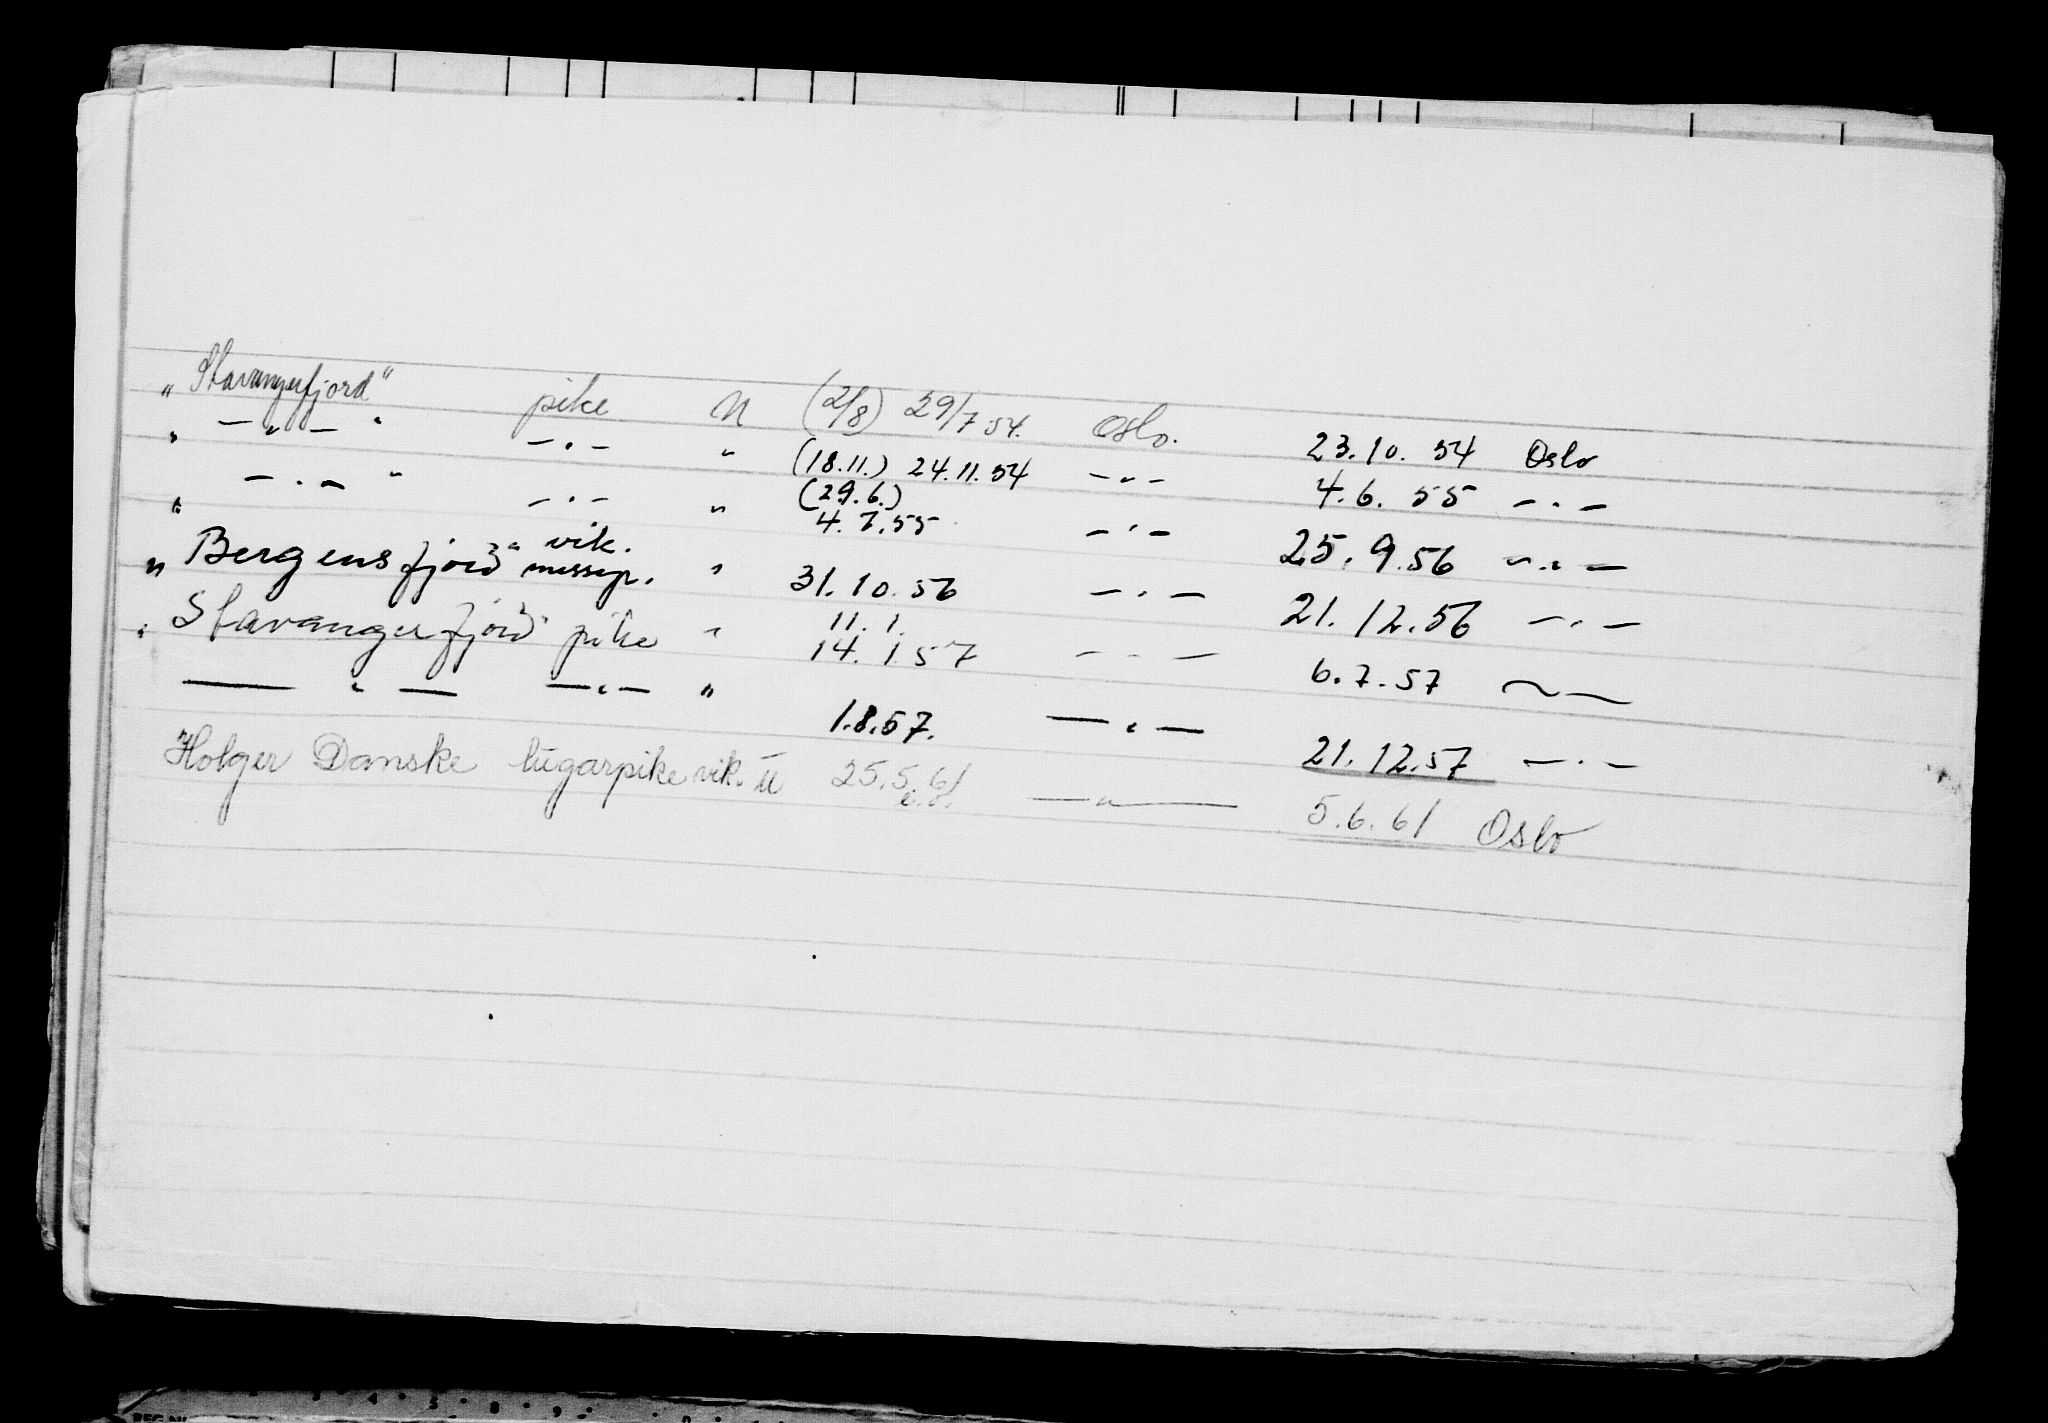 „ Stavangerfjord" pike N (2/8) 29/7 54. Oslo. 23.10.54 Oslo
„ — „ — " — „ — " (18.11.) 24.11.54 — „ — 4.6.55 — „ —
„ — „ — " — „ — " (29.6.) 4.7.55 — „ — 25.9.56 — „ —
„ Bergensfjord" vik. messep. " 31.10.56 — „ — 21.12.56 — „ —
„ Stavangerfjord" pike " 11.1. 14.1.57 — „ — 6.7.57 — „ —
— „ — — „ — " 1.8.57. — „ — 21.12.57 — „ —
Holger Danske lugarpike vik. u 25.5.61 — „ — 5.6.61 Oslo